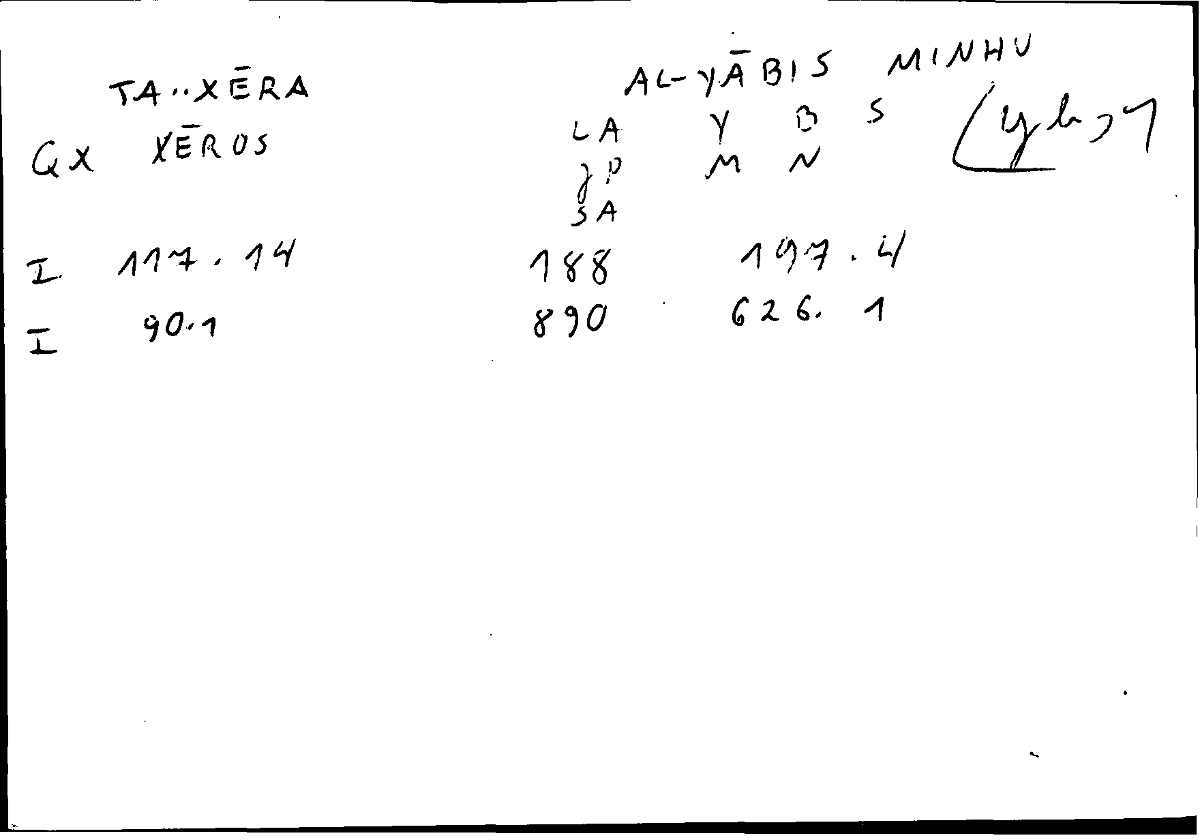 TA..XĒRA AL-YĀBIS MINHU
GX XĒROS LA Y B S
ʒP M N
SA
I 117.14 188 197.4
I 90.1 890 626.1